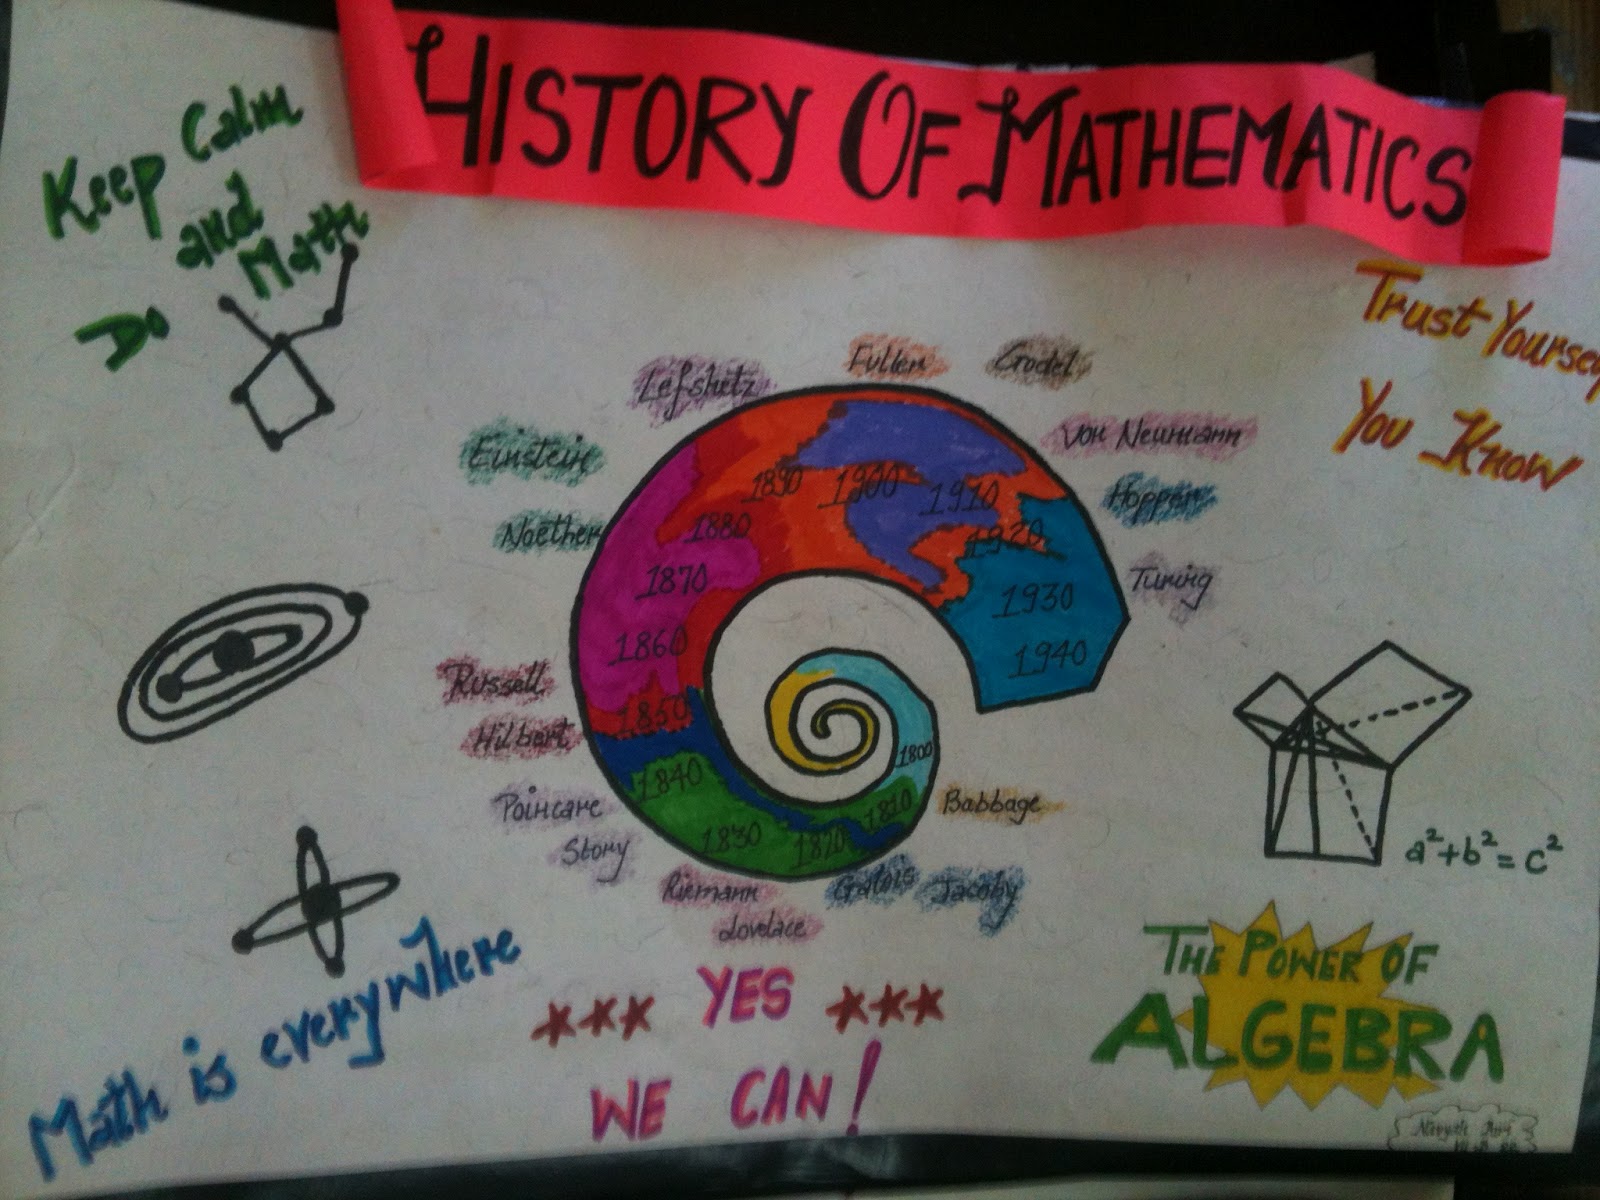 HISTORY OF MATHEMATICS
Keep Calm
and
Do Math
Trust Yourself
You Know
Fuller
Godel
Lefshetz
Von Neumann
Einstein
Hopper
Noether
Turing
Russell
Hilbert
Poincare
Story
Riemann
Lovelace
Galois
Jacoby
Babbage
1800
1810
1820
1830
1840
1850
1860
1870
1880
1890
1900
1910
1920
1930
1940
a²+b²=c²
Math is everywhere
*** YES ***
WE CAN!
THE POWER OF
ALGEBRA